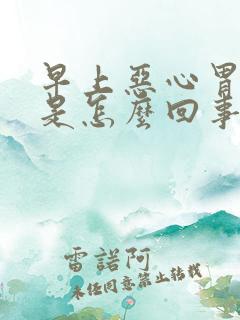 早上惡心冒
是怎麼回事
雷諾阿
未任同意禁止轉載